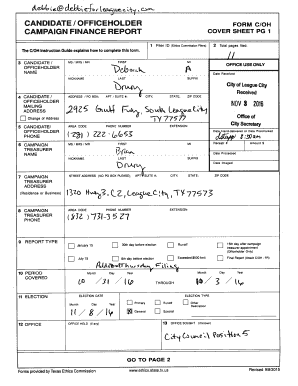 debbie@debbieforleaguecity.com
CANDIDATE / OFFICEHOLDER CAMPAIGN FINANCE REPORT
FORM C/OH COVER SHEET PG 1
The C/OH Instruction Guide explains how to complete this form.
1 Filer ID (Ethics Commission Filers)
2 Total pages filed: 11
3 CANDIDATE / OFFICEHOLDER NAME
MS / MRS / MR FIRST MI
Deborah A
NICKNAME LAST SUFFIX
Drury
OFFICE USE ONLY
Date Received
City of League City
Received
NOV 3 2016
Office of
City Secretary
4 CANDIDATE / OFFICEHOLDER MAILING ADDRESS
Change of Address
ADDRESS / PO BOX; APT / SUITE #; CITY; STATE; ZIP CODE
2925 Gulf Fwy, South League City
TX 77573
5 CANDIDATE / OFFICEHOLDER PHONE
AREA CODE PHONE NUMBER EXTENSION
(281) 222-6653
Date Hand-delivered or Date Postmarked
Receipt # Amount $
Date Processed
Date Imaged
6 CAMPAIGN TREASURER NAME
MS / MRS / MR FIRST MI
Brian
NICKNAME LAST SUFFIX
Drury
7 CAMPAIGN TREASURER ADDRESS
(Residence or Business)
STREET ADDRESS (NO PO BOX PLEASE); APT / SUITE #; CITY; STATE; ZIP CODE
1320 Hwy 3, C2, League City, TX 77573
8 CAMPAIGN TREASURER PHONE
AREA CODE PHONE NUMBER EXTENSION
(832) 731-3527
9 REPORT TYPE
January 15 30th day before election Runoff 15th day after campaign treasurer appointment (Officeholder Only)
July 15 8th day before election Exceeded $500 limit Final Report (Attach C/OH - FR)
10 PERIOD COVERED
Month Day Year Month Day Year
10 / 31 / 16 THROUGH 10 / 3 / 16
11 ELECTION
ELECTION DATE ELECTION TYPE
Month Day Year Primary Runoff Other Description
11 / 8 / 16 General Special
12 OFFICE
OFFICE HELD (if any)
13 OFFICE SOUGHT (if known)
City Council Position 5
GO TO PAGE 2
Forms provided by Texas Ethics Commission www.ethics.state.tx.us Revised 9/8/2015